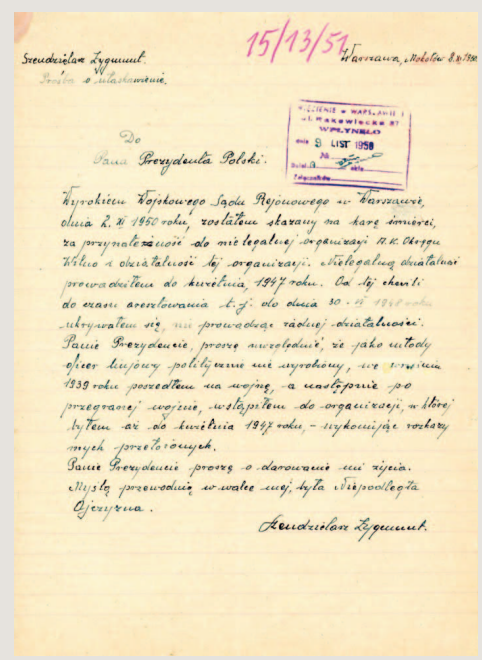 15/13/51
Szendzielarz Zygmunt. Warszawa, Mokotów 8.XI.1950
Prośba o ułaskawienie.
WIĘZIENIE w WARSZAWIE I
ul. Rakowiecka 37
WPŁYNĘŁO
dnia 9 LIST 1950
№
Dział
Załączników
Do
Pana Prezydenta Polski.
Wyrokiem Wojskowego Sądu Rejonowego w Warszawie,
dnia 2. XI 1950 roku, zostałem skazany na karę śmierci,
za przynależność do nielegalnej organizacji A.K. Okręgu
Wilno i działalność tej organizacji. Nielegalną działalność
prowadziłem do kwietnia, 1947 roku. Od tej chwili
do czasu aresztowania t.j. do dnia 30. VI 1948 roku
ukrywałem się, nie prowadząc żadnej działalności.
Panie Prezydencie, proszę uwzględnić, że jako młody
oficer liniowy politycznie nie wyrobiony, we wrześniu
1939 roku poszedłem na wojnę, a następnie po
przegranej wojnie, wstąpiłem do organizacji, w której
byłem aż do kwietnia 1947 roku, – wykonując rozkazy
mych przełożonych.
Panie Prezydencie proszę o darowanie mi życia.
Myślą przewodnią w walce mej, była Niepodległa
Ojczyzna.
Szendzielarz Zygmunt.